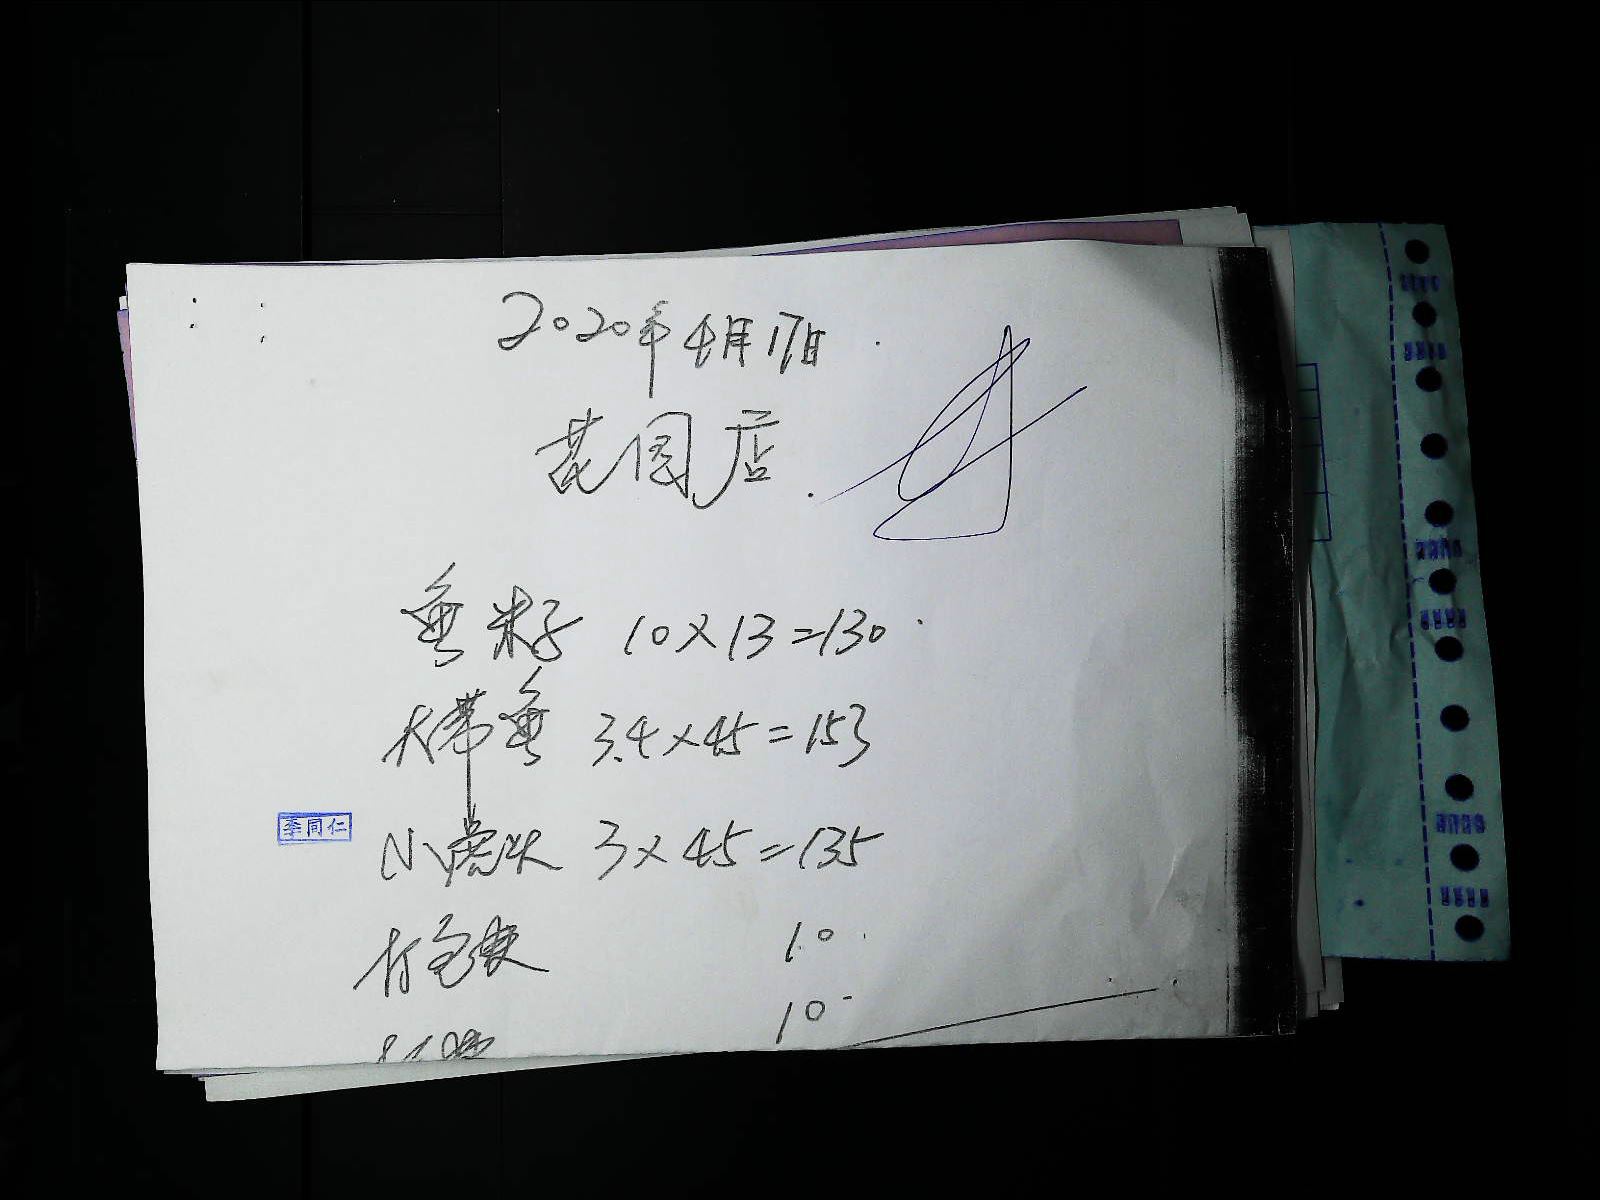 2020年4月17日
花园店
鱼籽 10×13=130
大带鱼 3.4×45=153
小 3×45=135
李同仁
打包 10
10